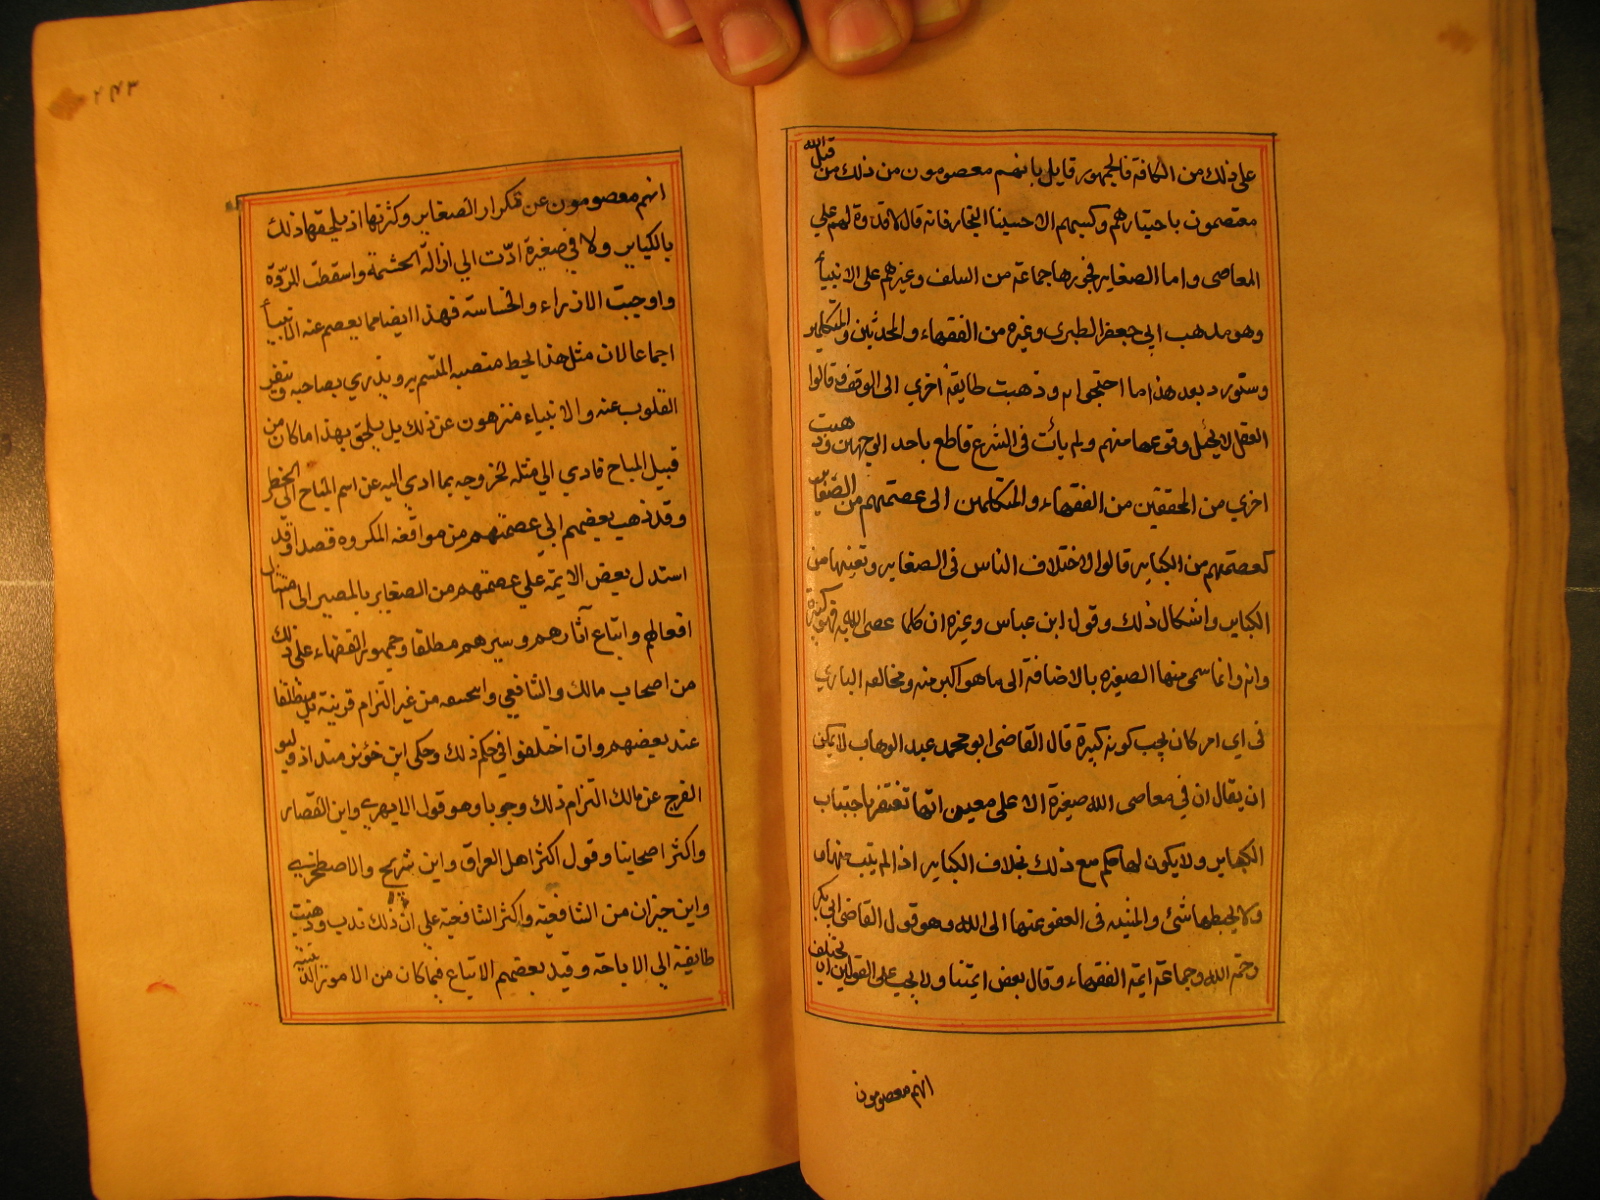 على ذلك من الكافة فالجمهور قايل بانهم معصومون من ذلك من قبل الله
معتصمون باختيارهم وكسبهم الا حسينا النجار فانه قال لا قدرة لهم علي
المعاصى واما الصغاير فجوزها جماعة من السلف وغيرهم على الانبيأ
وهو مذهب ابي جعفر الطبرى وغيره من الفقهاء والمحدثين والمتكلمين
وستورد بعد هذا ما احتجوا به وذهبت طايفة اخري الى الوقف وقالوا
العقل لا يحيل وقوعها منهم ولم يأت فى الشرع قاطع باحد الوجهين وذهبت
اخري من المحققين من الفقهاء والمتكلمين الى عصمتهم من الصغاير
كعصمتهم من الكباير قالوا لاختلاف الناس فى الصغاير وتعينها من
الكباير واشكال ذلك وقول ابن عباس وغيره ان كلما عصى الله به فهو كبيرة
وانه وانما سمى منها الصغيره بالاضافة الى ما هو اكبر منه ومخالفه الباري
فى اي امر كان يجب كونه كبيرة قال القاضى ابو محمد عبد الوهاب لا يمكن
ان يقال ان في معاصى الله صغيرة الا على معين انها تغتفر باجتناب
الكباير ولا يكون لها حكم مع ذلك بخلاف الكباير اذا لم يتب منها
ولا يحبطها شئ والمشيه فى العفو عنها الى الله وهو قول القاضى ابى بكر
وجماعة ايمة الفقهاء وقال بعض ايمتنا ولا يجب على القولين ان يختلف
انهم معصومون
٢٤٣
انهم معصومون عن تكرار الصغاير وكثرتها اذ يلحقها ذلك
بالكباير ولا في صغيرة ادّت الي ازالة الحشمة واسقطت المروّة
واوجبت الازراء والخساسة فهذا ايضا مما يعصم عنه الانبيأ
اجماعا لان مثل هذا يحط منصبه المتسم به ويذري بصاحبه وتنفر
القلوب عنه والانبياء منزهون عن ذلك بل يلحق بهذا ما كان من
قبيل المباح فادي الي مثله لخروجه بما ادي اليه عن اسم المباح الى الخطر
وقد ذهب بعضهم الي عصمتهم من مواقعة المكروه قصدا وقد
استدل بعض الايمة علي عصمتهم من الصغاير بالمصير الى امتثال
افعالهم واتباع آثارهم وسيرهم مطلقا وجمهور الفقهاء على ذلك
من اصحاب مالك والشافعي من غير التزام قرينة بل مطلقا
عند بعضهم وان اختلفوا في حكم ذلك وحكى ابن خوئز منداذ وابو
الفرج عن مالك التزام ذلك وجوبا وهو قول الابهري وابن القصار
واكثر اصحابنا وقول اكثر اهل العراق وابن شريح والاصطخري
وابن خيران من الشافعية واكثر الشافعية علي ان ذلك ندب وذهبت
طايفة الي الاباحة وقيد بعضهم الاتباع فيما كان من الامور الدينية